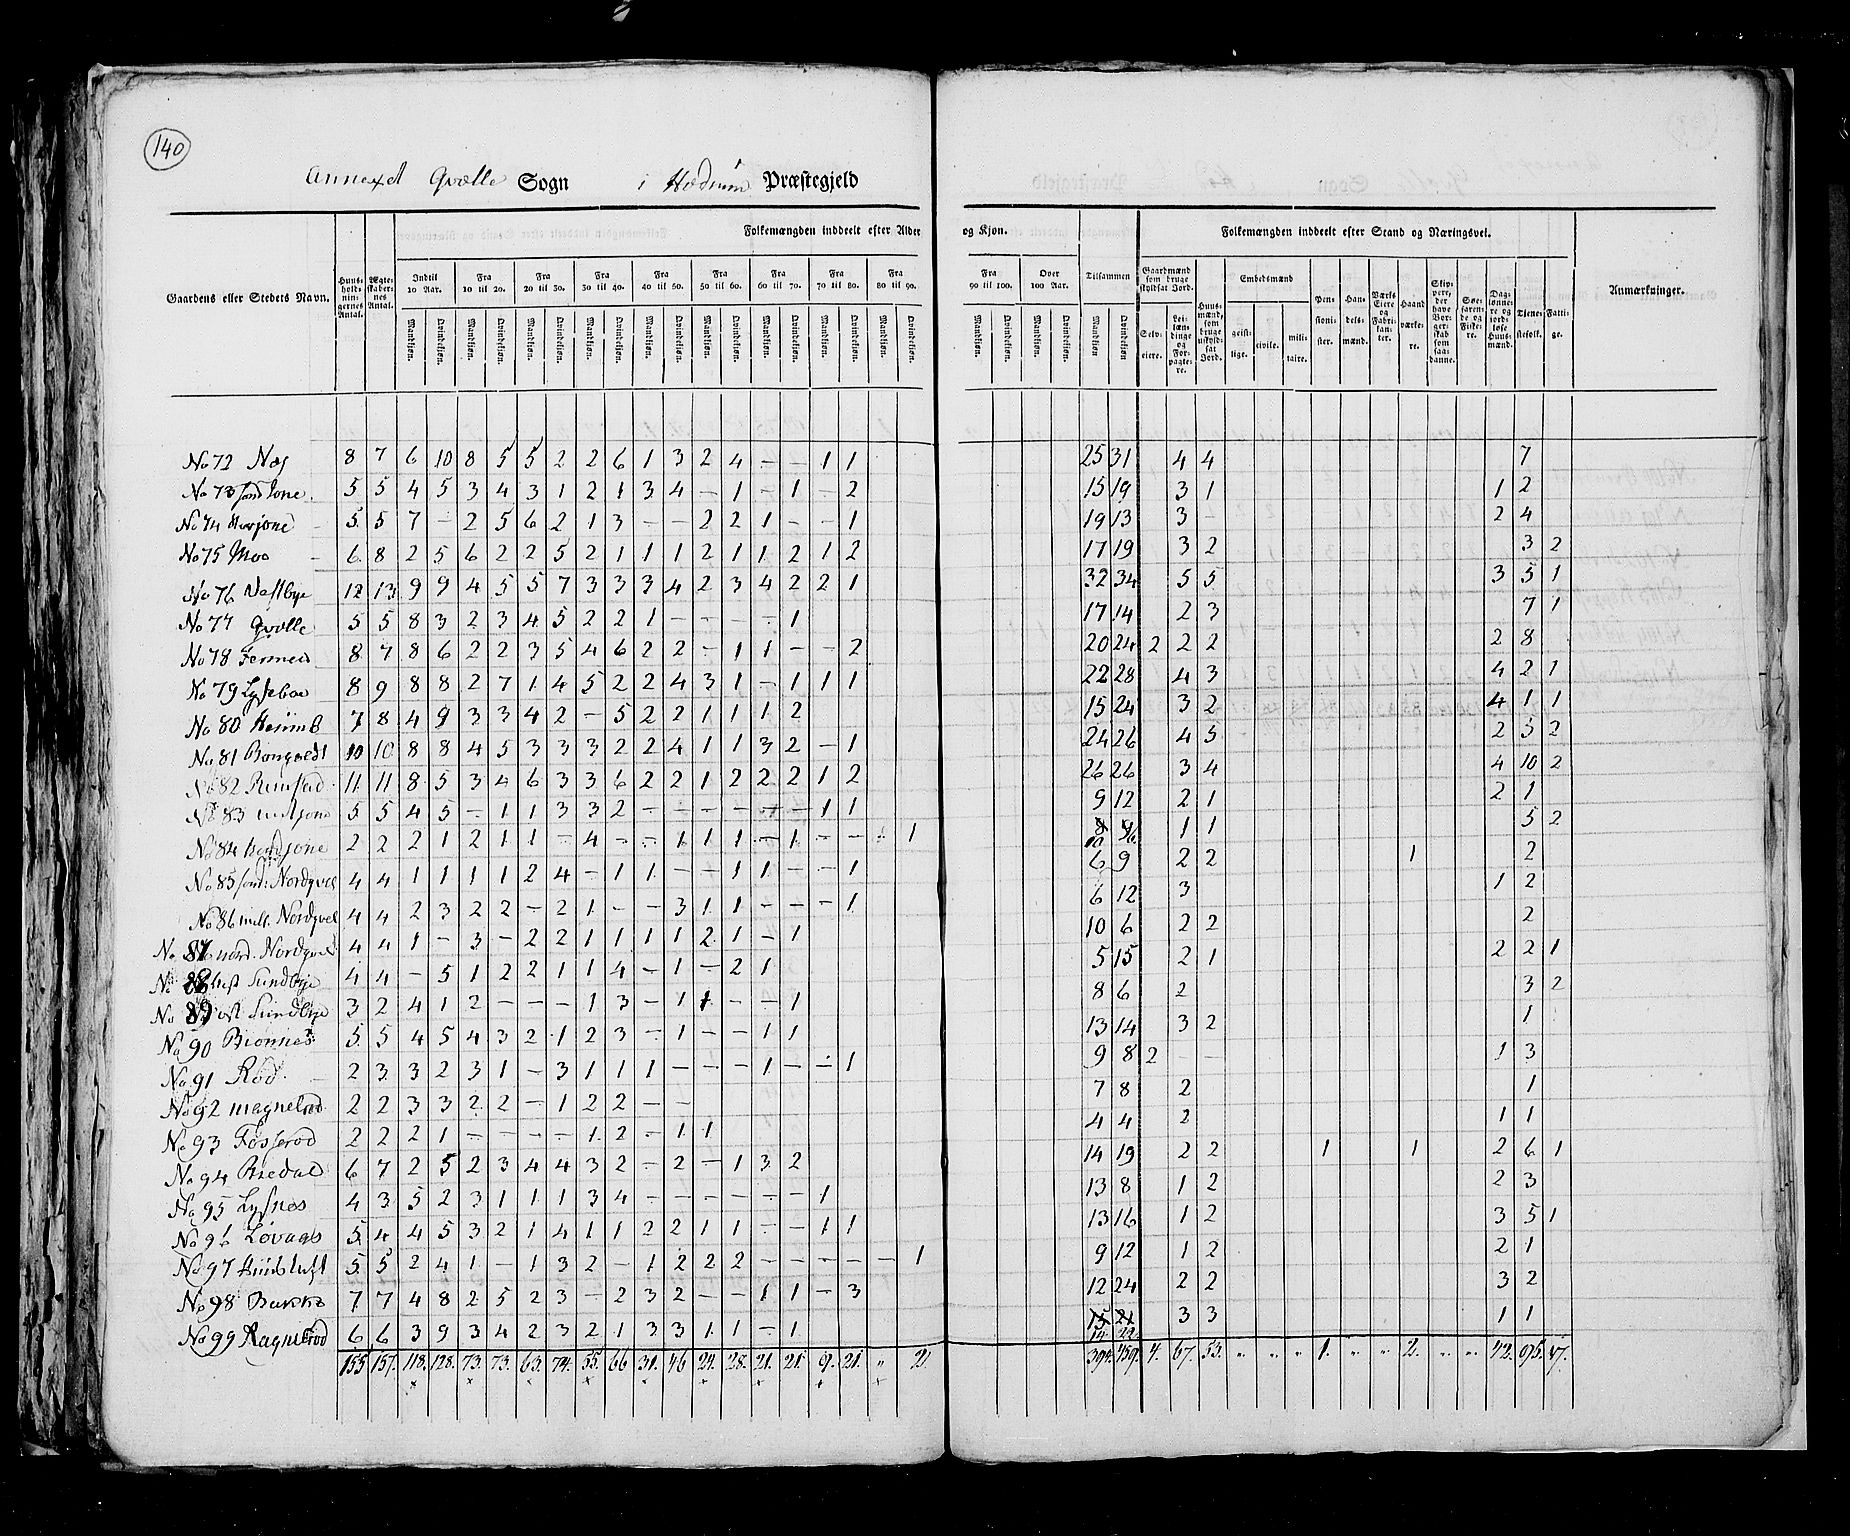 140
Annexet Qvælle Sogn i Hedrum Præstegjeld
Folkemængden inddeelt efter Alder og Kjøn.
Folkemængden inddeelt efter Stand og Næringsvei.
Gaardens eller Stedets Navn.
Huusholdningernes Antal.
Ægteskabernes Antal.
Indtil 10 Aar. Fra 10 til 20. Fra 20 til 30. Fra 30 til 40. Fra 40 til 50. Fra 50 til 60. Fra 60 til 70. Fra 70 til 80. Fra 80 til 90. Fra 90 til 100. Over 100 Aar. Tilsammen
Mandkjøn. Qvindekjøn.
Gaardmænd som bruge skyldsat Jord.
Selveiere. Leilændinge og Forpagtere.
Huusmænd, som bruge uskyldsat Jord.
Embedsmænd
geistlige. civile. militaire.
Pensionister. Handelsmænd. Værkseiere og Fabrikanter. Haandværkere.
Skippere, der have Borgerskab som saadanne.
Søefarende og Fiskere.
Daglønnere og jordløse Huusmænd.
Tjenestefolk. Fattige.
Anmærkninger.
No 72 Næs 8 7 6 10 8 5 5 2 2 6 1 3 2 4 – – 1 1 25 31 4 4 7
No 73 5 5 4 5 3 4 3 1 2 1 3 4 – 1 – 1 – 2 15 19 3 1 1 2
No 74 5 5 7 – 2 5 6 2 1 3 – – 2 2 1 – – 1 19 13 3 – 2 4
No 75 Moe 6 8 2 5 6 2 2 5 2 1 1 1 2 1 1 2 1 2 17 19 3 2 3 2
No 76 Vestbye 12 13 9 9 4 5 5 7 3 3 3 4 2 3 4 2 2 1 32 34 5 5 3 5 1
No 77 Qvælle 5 5 8 3 2 3 4 5 2 2 1 – – – – 1 17 14 2 3 7 1
No 78 8 7 8 6 2 2 3 5 4 6 2 2 – 1 1 – – 2 20 24 2 2 2 2 8
No 79 Lyseboe 8 9 8 8 2 7 1 4 5 2 2 4 3 1 – 1 1 1 22 28 4 3 4 2 1
No 80 7 8 4 9 3 3 4 2 – 5 2 2 1 1 1 2 15 24 3 2 4 1 1
No 81 10 10 8 8 4 5 3 3 3 2 2 4 1 1 3 2 – 1 24 26 4 5 2 5 2
No 82 11 11 8 5 3 4 6 3 3 6 2 2 1 2 2 2 1 2 26 26 3 4 4 10 2
No 83 5 5 4 5 – 1 1 3 3 2 – – – – – – 1 1 9 12 2 1 2 1
No 84 2 2 2 1 2 1 1 – 4 – – 1 1 1 – 1 – – – 1 10 6 1 1 5 2
No 85 Nordqvel 4 4 1 1 1 1 2 4 – 1 1 – – 1 1 – – 1 6 9 2 2 1 2
No 86 mell. Nordqvel 4 4 2 3 2 2 – 2 1 – – 3 1 1 – – – 1 6 12 3 1 2
No 87 nord. Nordqvel 4 4 1 – 3 – 2 2 1 1 1 1 2 1 – 1 10 6 2 2 2
No 88 Sundbye 4 4 – 5 1 2 2 1 1 4 – 1 – 2 1 5 15 2 1 2 2 1
No 89 øst Sundbye 3 2 4 1 2 – – – 1 3 – 1 1 – – 1 8 6 2 3 2
No 90 Bionnes 5 5 4 5 4 3 2 1 2 3 – 1 – – 1 1 13 14 3 2 1
No 91 Rød 2 3 3 2 3 1 – 3 1 1 1 – – – 1 – – 1 9 8 2 – – 1 3
No 92 2 2 3 3 2 2 – 1 2 2 – – 7 8 2 1
No 93 2 2 2 1 – – – – 1 2 – 1 1 4 4 2 1 1
No 94 6 7 2 5 2 3 4 4 3 2 – 2 – 1 3 2 14 19 2 2 1 1 2 6 1
No 95 Lysnes 4 3 5 2 3 1 1 1 3 4 – – – – – – 1 13 8 1 2 2 3
No 96 5 4 4 5 3 2 1 4 1 1 2 2 1 1 – – 1 1 13 16 1 2 3 5 1
No 97 5 5 2 4 1 – 1 3 2 – 1 2 2 2 – – – – – 1 9 12 1 2 2 1
No 98 7 7 4 8 2 5 2 3 – 2 3 2 – – 1 1 – 3 12 24 2 2 3 2
No 99 6 6 3 9 3 4 2 3 2 1 3 3 1 1 – 1 14 22 3 3 1 1
155 157 118 128 73 73 63 74 55 66 31 46 24 28 21 21 9 21 „ 2 394 459 4 67 53 „ „ „ 1 „ „ 2 „ „ 42 95 17